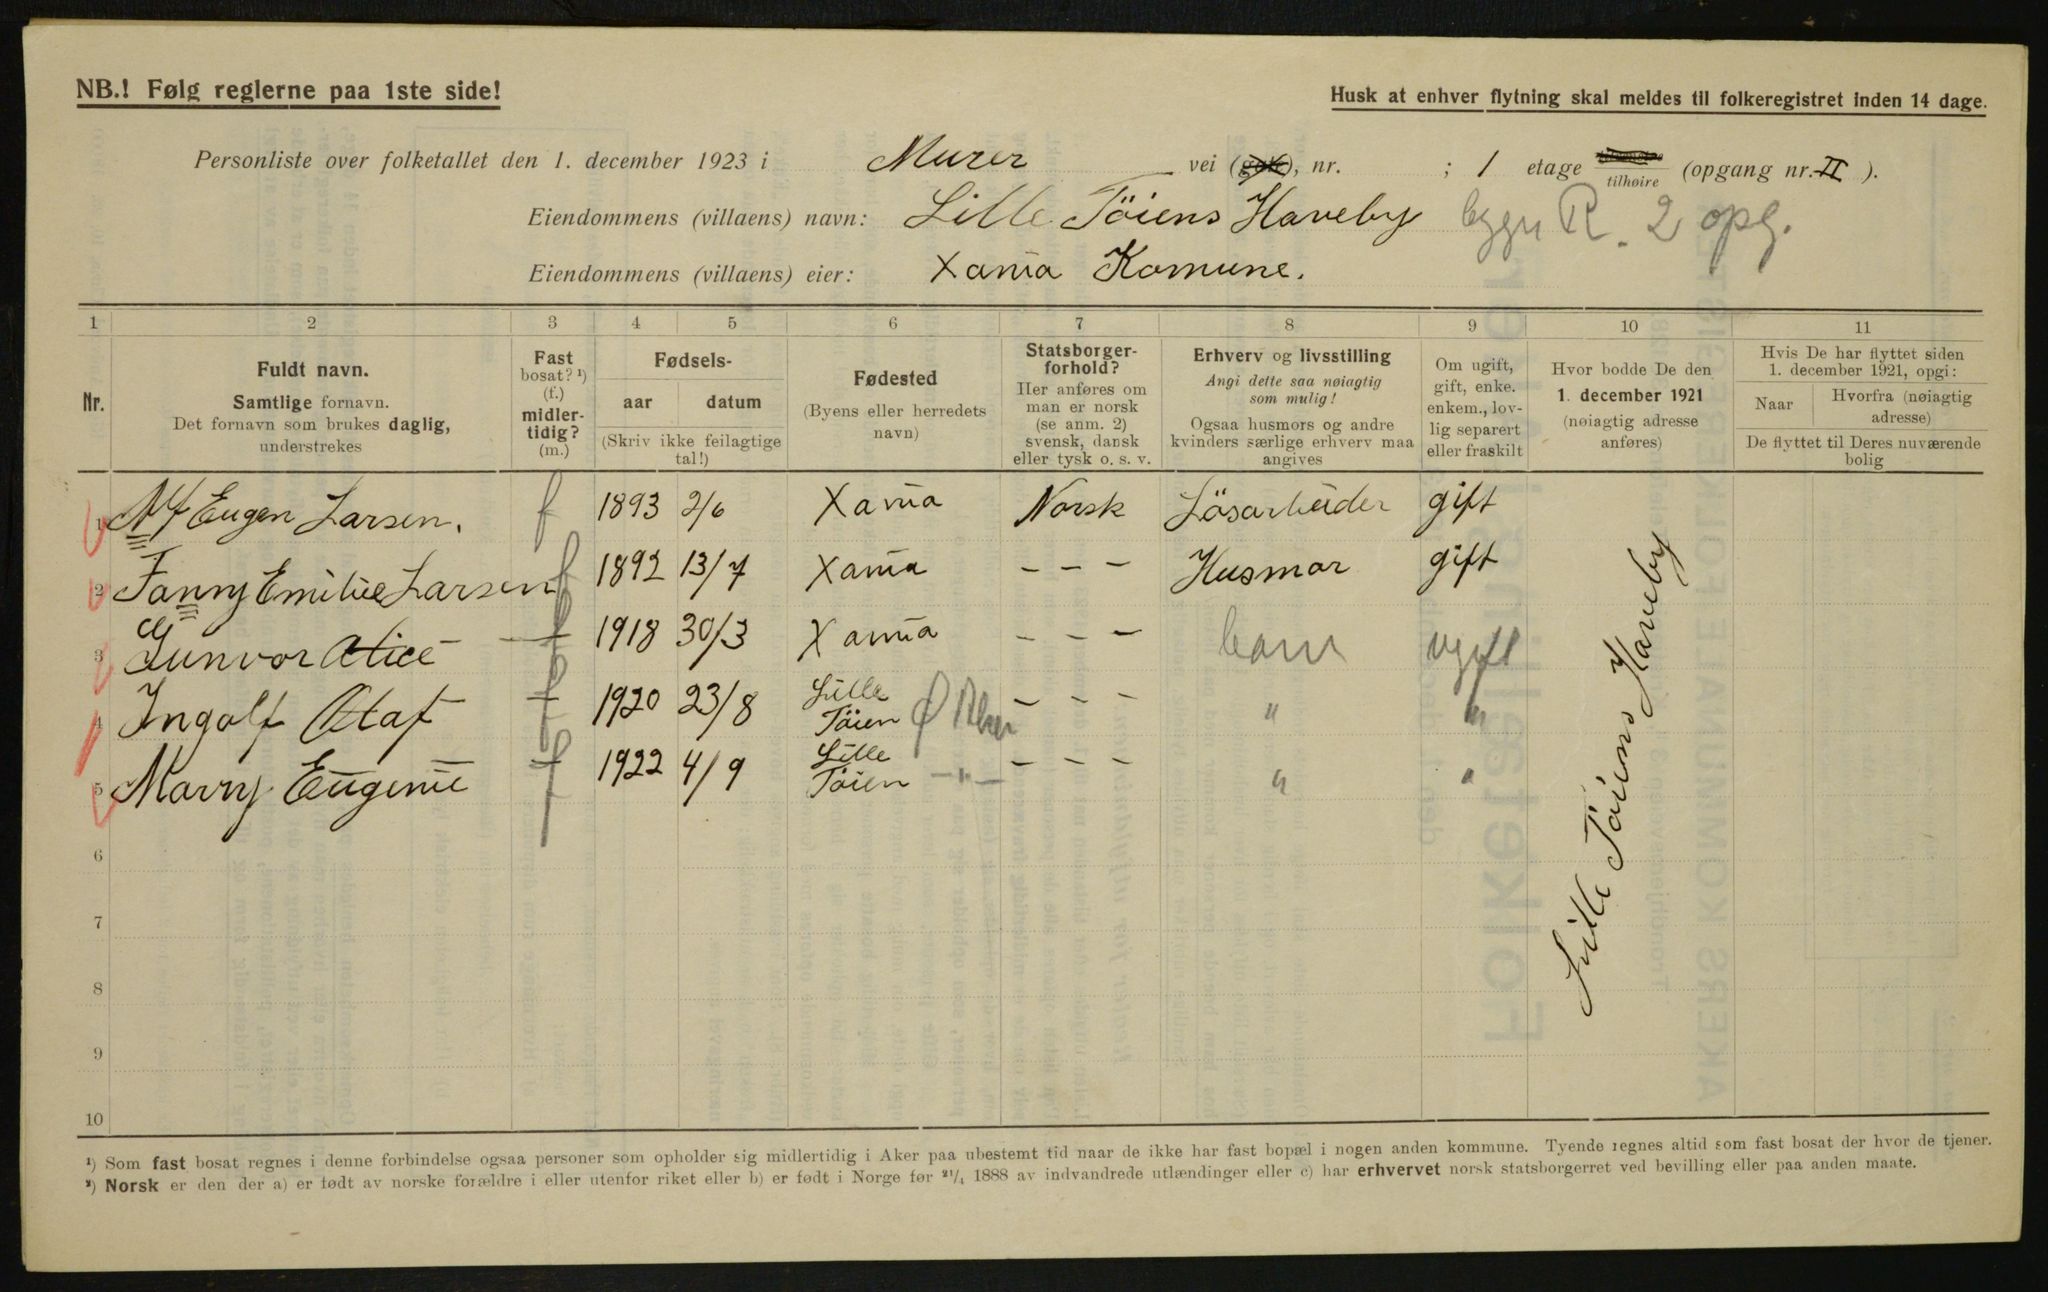 NB.! Følg reglerne paa 1ste side!
Husk at enhver flytning skal meldes til folkeregistret inden 14 dage.
Personliste over folketallet den 1. december 1923 i Murer vei (gate), nr. ; 1 etage tilhøire (opgang nr. II ).
Eiendommens (villaens) navn: Lille Töiens Haveby bygn R. 2 opg.
Eiendommens (villaens) eier: Xania Komune.
1 2 3 4 5 6 7 8 9 10 11
Nr.
Fuldt navn.
Samtlige fornavn.
Det fornavn som brukes daglig,
understrekes
Fast
bosat? ¹)
(f.)
midler-
tidig?
(m.)
Fødsels-
aar datum
(Skriv ikke feilagtige
tal!)
Fødested
(Byens eller herredets
navn)
Statsborger-
forhold?
Her anføres om
man er norsk
(se anm. 2)
svensk, dansk
eller tysk o. s. v.
Erhverv og livsstilling
Angi dette saa nøiagtig
som mulig!
Ogsaa husmors og andre
kvinders særlige erhverv maa
angives
Om ugift,
gift, enke.
enkem., lov-
lig separert
eller fraskilt
Hvor bodde De den
1. december 1921
(nøiagtig adresse
anføres)
Hvis De har flyttet siden
1. december 1921, opgi:
Naar Hvorfra (nøiagtig
adresse)
De flyttet til Deres nuværende
bolig
1 Alf Eugen Larsen. f 1893 2/6 Xania Norsk Lösarbeider gift
2 Fanny Emilie Larsen f 1892 13/7 Xania - - - Husmor gift
3 Gunvor Alice — f 1918 30/3 Xania - - - barn ugift
4 Ingolf Olaf — f 1920 23/8 Lille Töien Ø Aker - - - " "
5 Marry Eugenie — f 1922 4/9 Lille Töien —"— - - - " "
Lille Töiens Haveby
6
7
8
9
10
¹) Som fast bosat regnes i denne forbindelse ogsaa personer som opholder sig midlertidig i Aker paa ubestemt tid naar de ikke har fast bopæl i nogen anden kommune. Tyende regnes altid som fast bosat der hvor de tjener.
²) Norsk er den der a) er født av norske forældre i eller utenfor riket eller b) er født i Norge før ²¹/₄ 1888 av indvandrede utlændinger eller c) har erhvervet norsk statsborgerret ved bevilling eller paa anden maate.